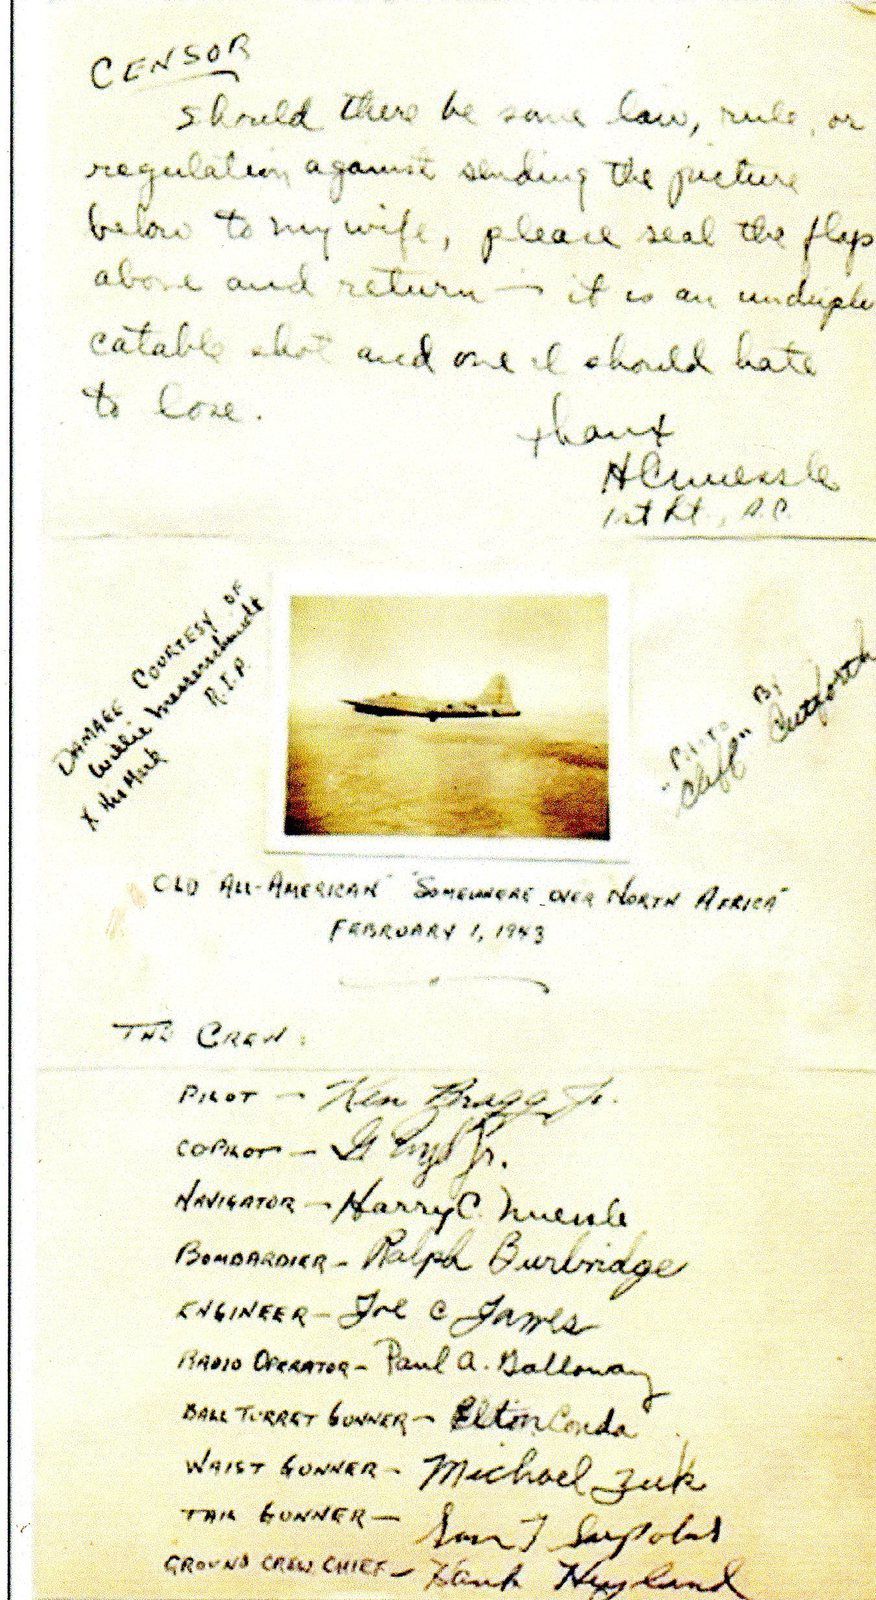 CENSOR
Should there be some law, rule, or
regulation against sending the picture
below to my wife, please seal the flap
above and return — it is an undupli
catable shot and one I should hate
to lose.
thanx
HCNuessle
1st Lt., A.C.
DAMAGE COURTESY OF
Willie Messerschmidt
R.I.P.
X His Mark
"PHOTO" By
"Cliff" Cutforth
OLD "ALL-AMERICAN" "SOMEWHERE OVER NORTH AFRICA"
FEBRUARY 1, 1943
THE CREW:
PILOT — Ken Bragg Jr.
COPILOT — G Jr.
NAVIGATOR — Harry C. Nuessle
BOMBARDIER — Ralph Burbridge
ENGINEER — Joe C James
RADIO OPERATOR — Paul A. Galloway
BALL TURRET GUNNER — Elton Conda
WAIST GUNNER — Michael Zuk
TAIL GUNNER — Sam T
GROUND CREW CHIEF — Hank Hyland